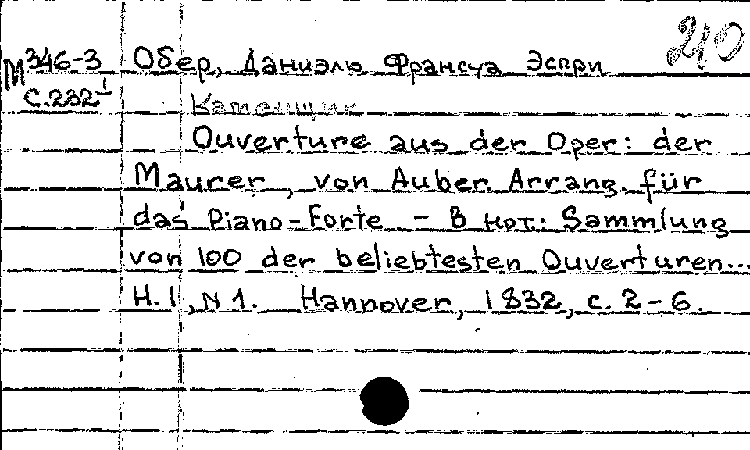 210
М 346-3 Обер, Даниэль Франсуа Эспри
с.232¹ Каменщик
Ouverture aus der Oper: der
Maurer, von Auber. Arrang. für
das Piano-Forte - В нот.: Sammlung
von 100 der beliebtesten Ouverturen...
H.I, N 1. Hannover, 1832, с. 2-6.